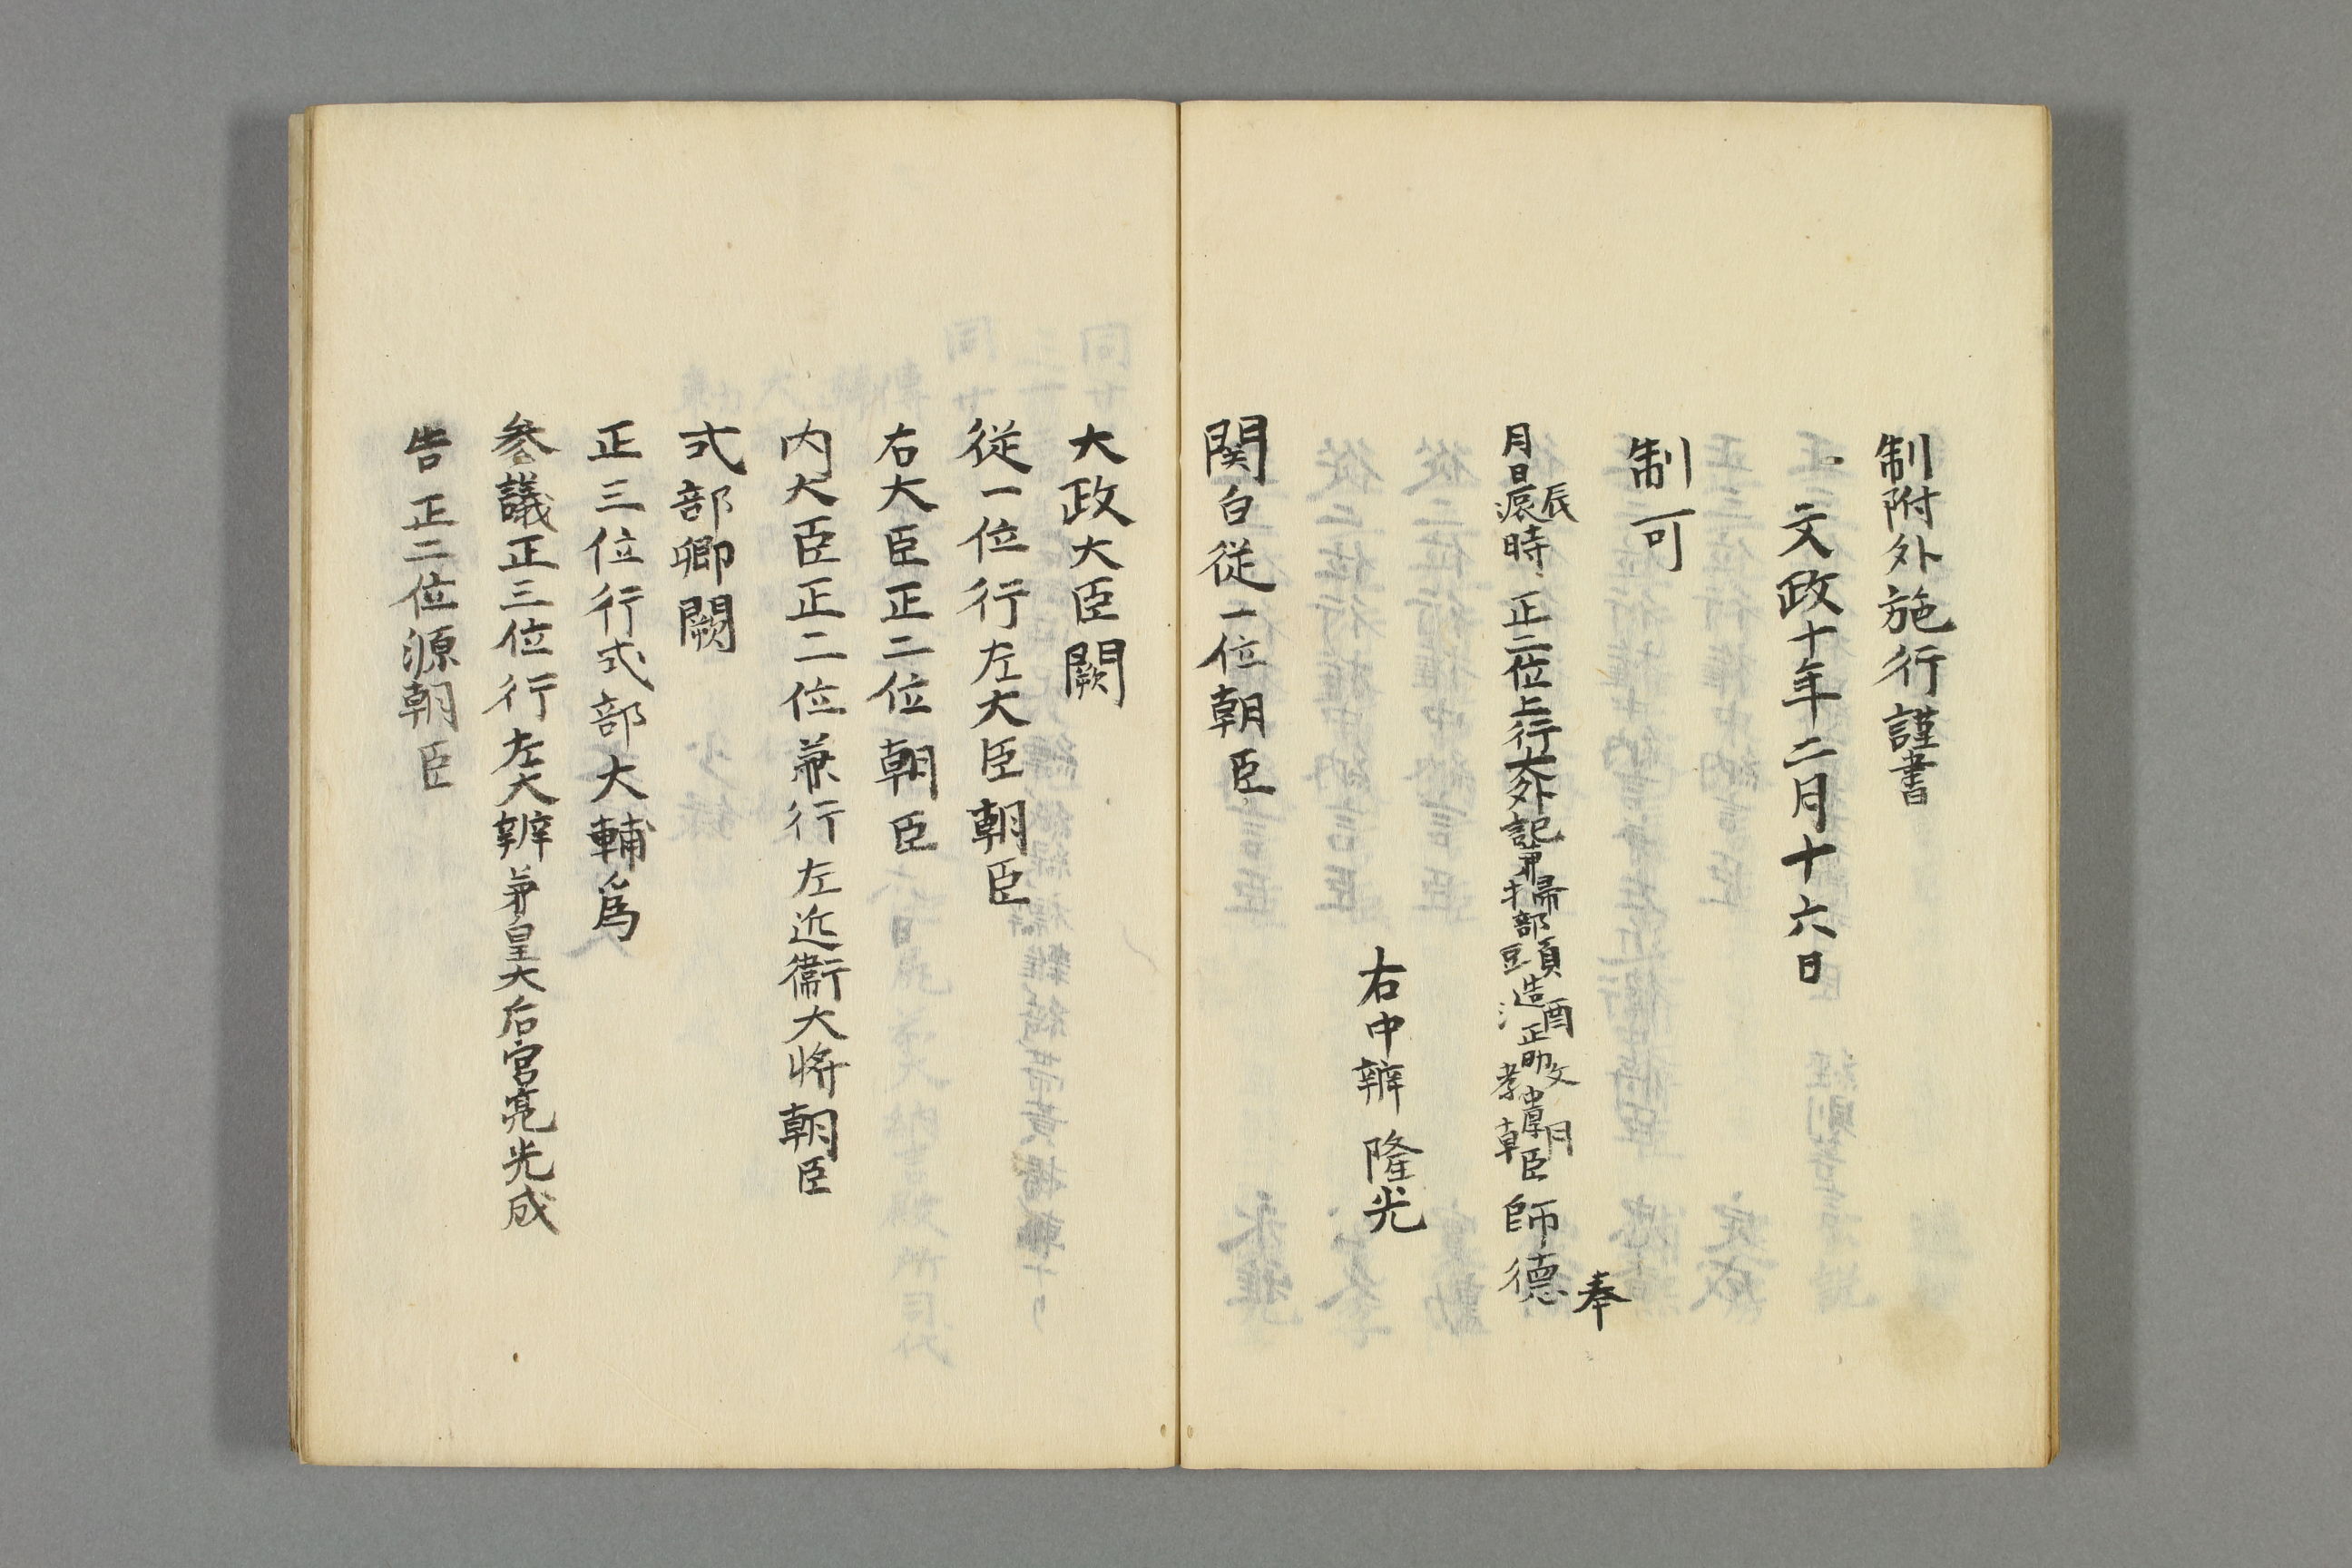 制附外施行謹書
文政十年二月十六日
制可
月日辰時正二位上行大外記兼掃部頭造酒正助教中原朝臣師德
奉
右中辨 隆光
関白從一位朝臣
大政大臣闕
從一位行左大臣朝臣
右大臣正二位朝臣
内大臣正二位兼行左近衞大将朝臣
式部卿闕
正三位行式部大輔爲
参議正三位行左大辨兼皇大后宮亮光成
告正二位源朝臣